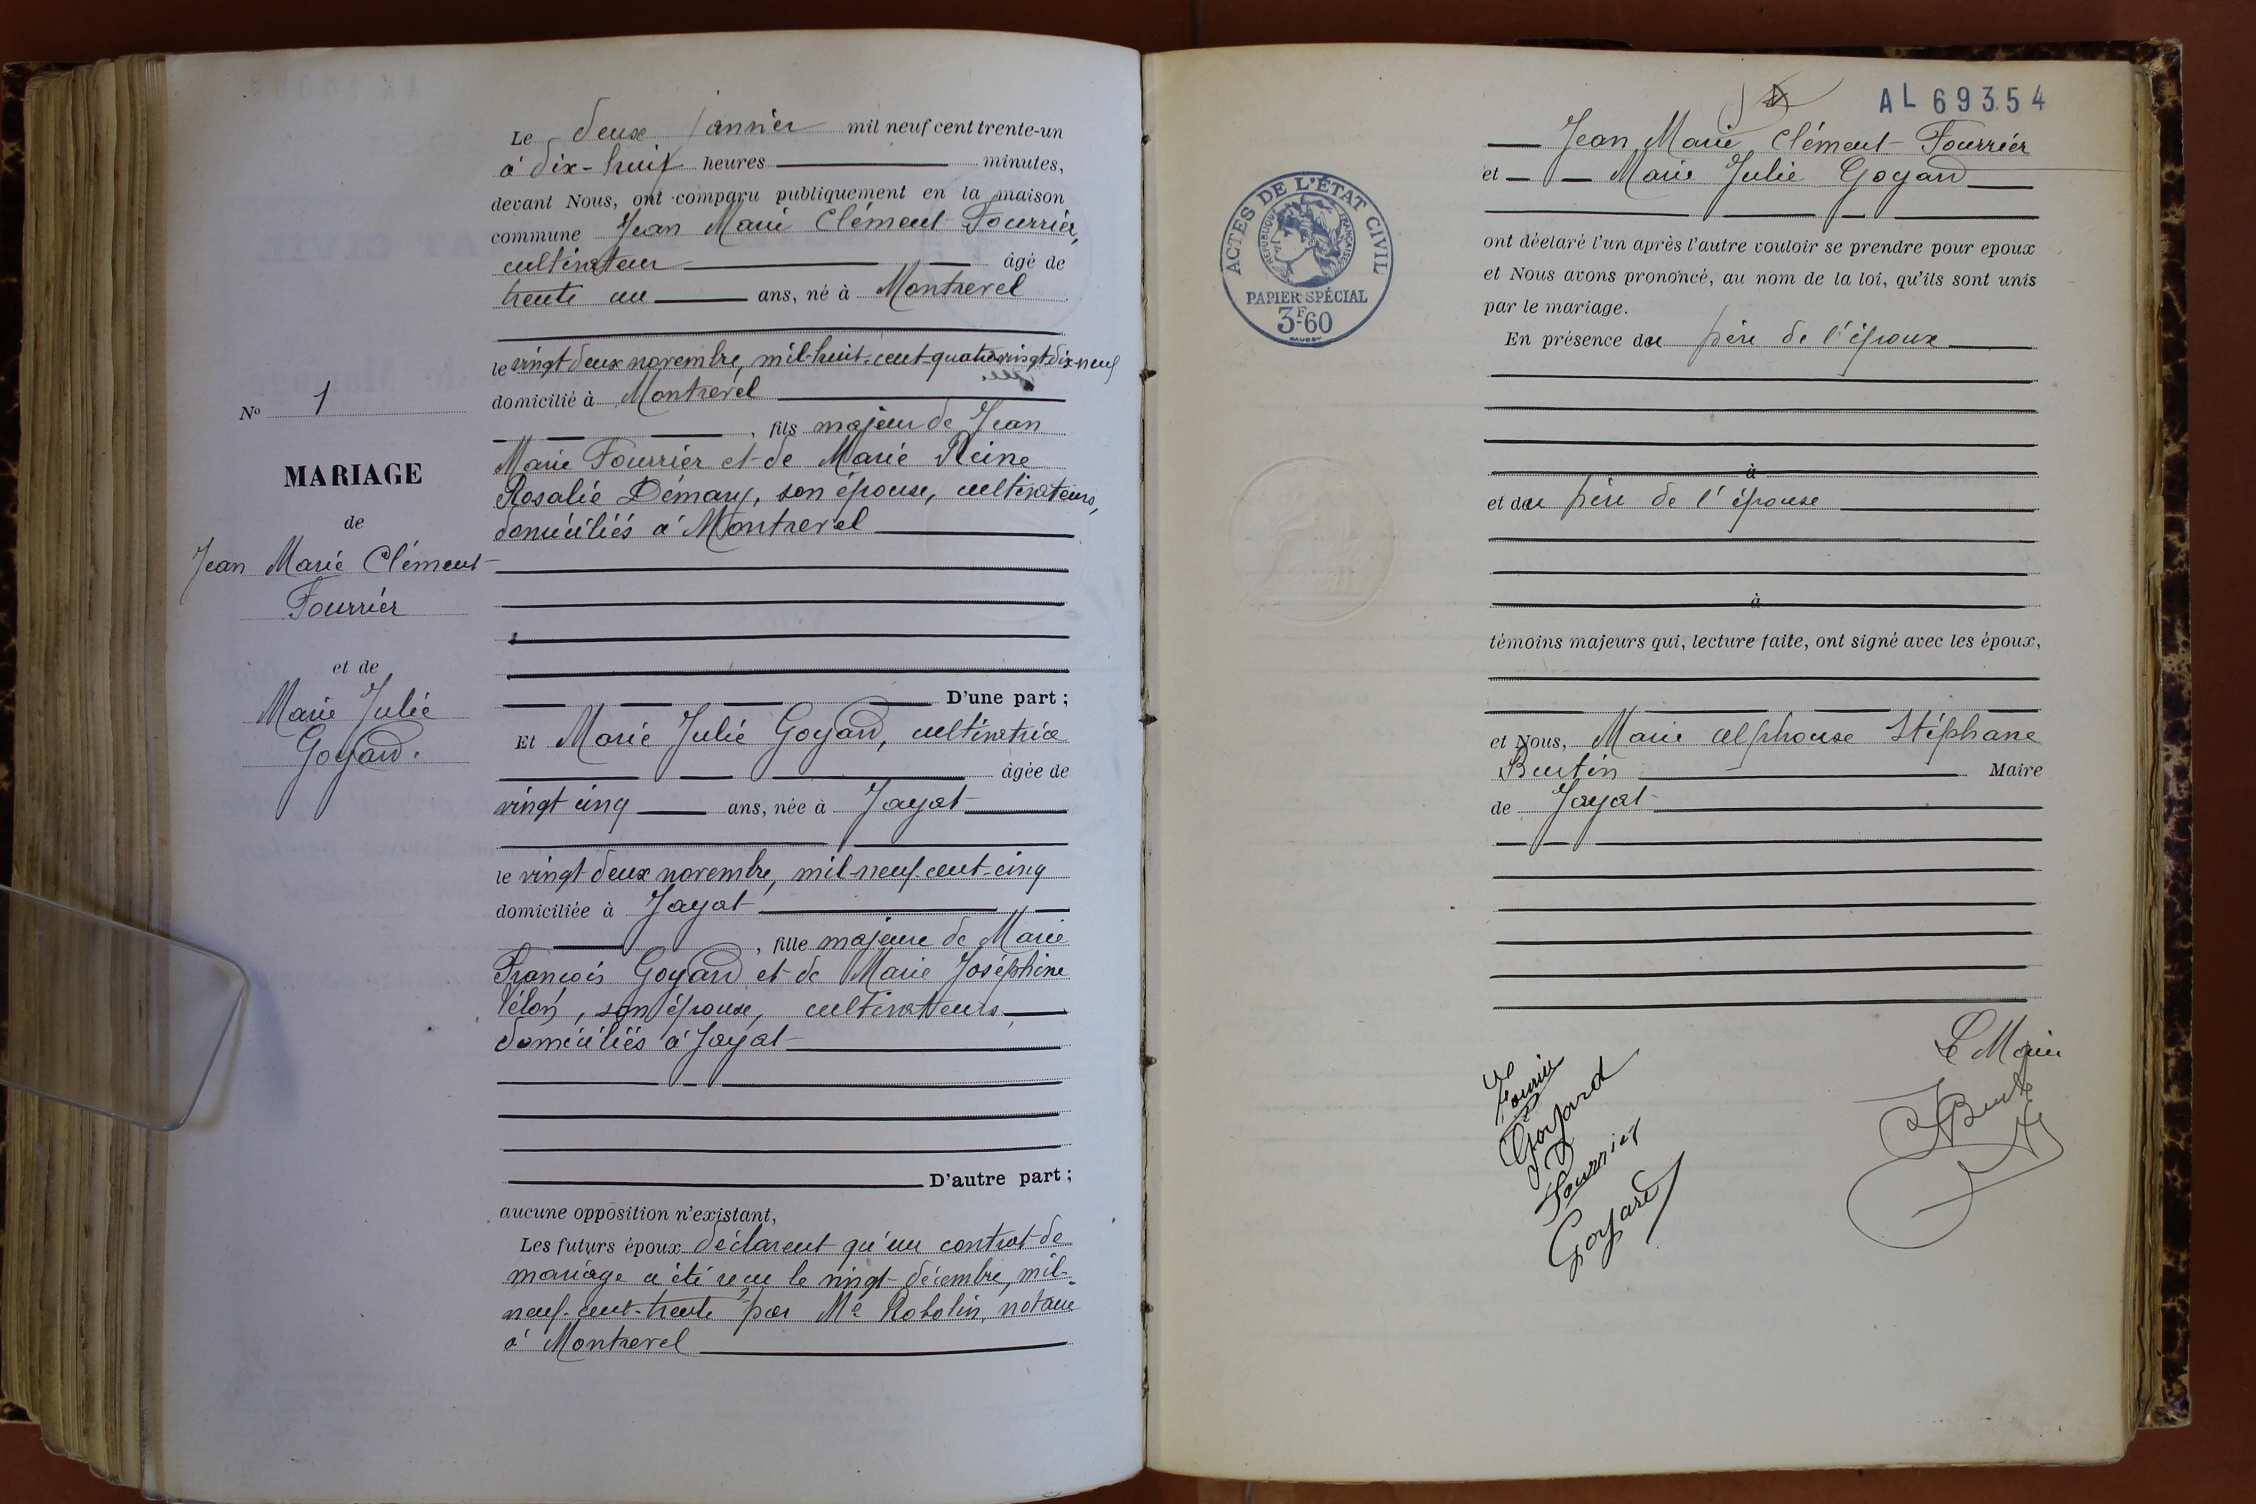 Le deux janvier mil neuf cent trente-un
à dix-huit heures minutes,
devant Nous, ont comparu publiquement en la maison
commune Jean Marie Clément Fourrier,
cultivateur âgé de
trente un ans, né à Montrevel
le vingt deux novembre, mil-huit-cent-quatrevingt dix-neuf
domicilié à Montrevel
, fils majeur de Jean
Marie Fourrier et de Marie Reine
Rosalie Démary, son épouse, cultivateurs,
domiciliés à Montrevel
D'une part ;
Et Marie Julie Goyard, cultivatrice
âgée de
vingt cinq ans, née à Jayat
le vingt deux novembre, mil-neuf-cent-cinq
domiciliée à Jayat
, fille majeure de Marie
François Goyard et de Marie Joséphine
Vélon, son épouse, cultivateurs
domiciliés à Jayat
D'autre part ;
aucune opposition n'existant,
Les futurs époux déclarent qu'un contrat de
mariage a été reçu le vingt décembre, mil-
neuf-cent-trente par Me Robolin, notaire
à Montrevel
No 1
MARIAGE
de
Jean Marie Clément
Fourrier
et de
Marie Julie
Goyard.
AL 69354
Jean Marie Clément Fourrier
et Marie Julie Goyard
ont déclaré l'un après l'autre vouloir se prendre pour epoux
et Nous avons prononcé, au nom de la loi, qu'ils sont unis
par le mariage.
En présence du père de l'époux
à
et du père de l'épouse
à
témoins majeurs qui, lecture faite, ont signé avec les époux,
et Nous, Marie Alphonse Stéphane
Burtin Maire
de Jayat
ACTES DE L'ÉTAT CIVIL
RÉPUBLIQUE FRANÇAISE
PAPIER SPÉCIAL
3F60
Fourrier
Goyard
Fourrier
Goyard
Le Maire
Burtin